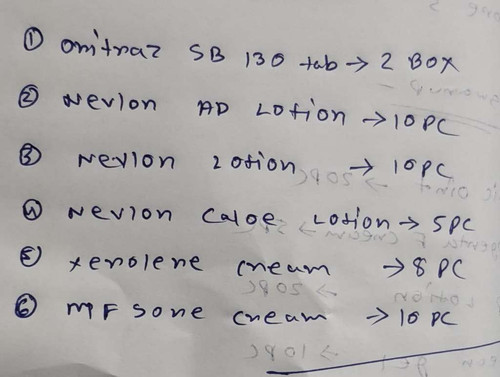 ① Onitraz SB 130 tab → 2 BOX
② Nevlon AD Lotion → 10 PC
③ Nevlon Lotion → 10 PC
④ Nevlon Caloe Lotion → 5 PC
⑤ Xerolene Cream → 8 PC
⑥ MF Sone Cream → 10 PC